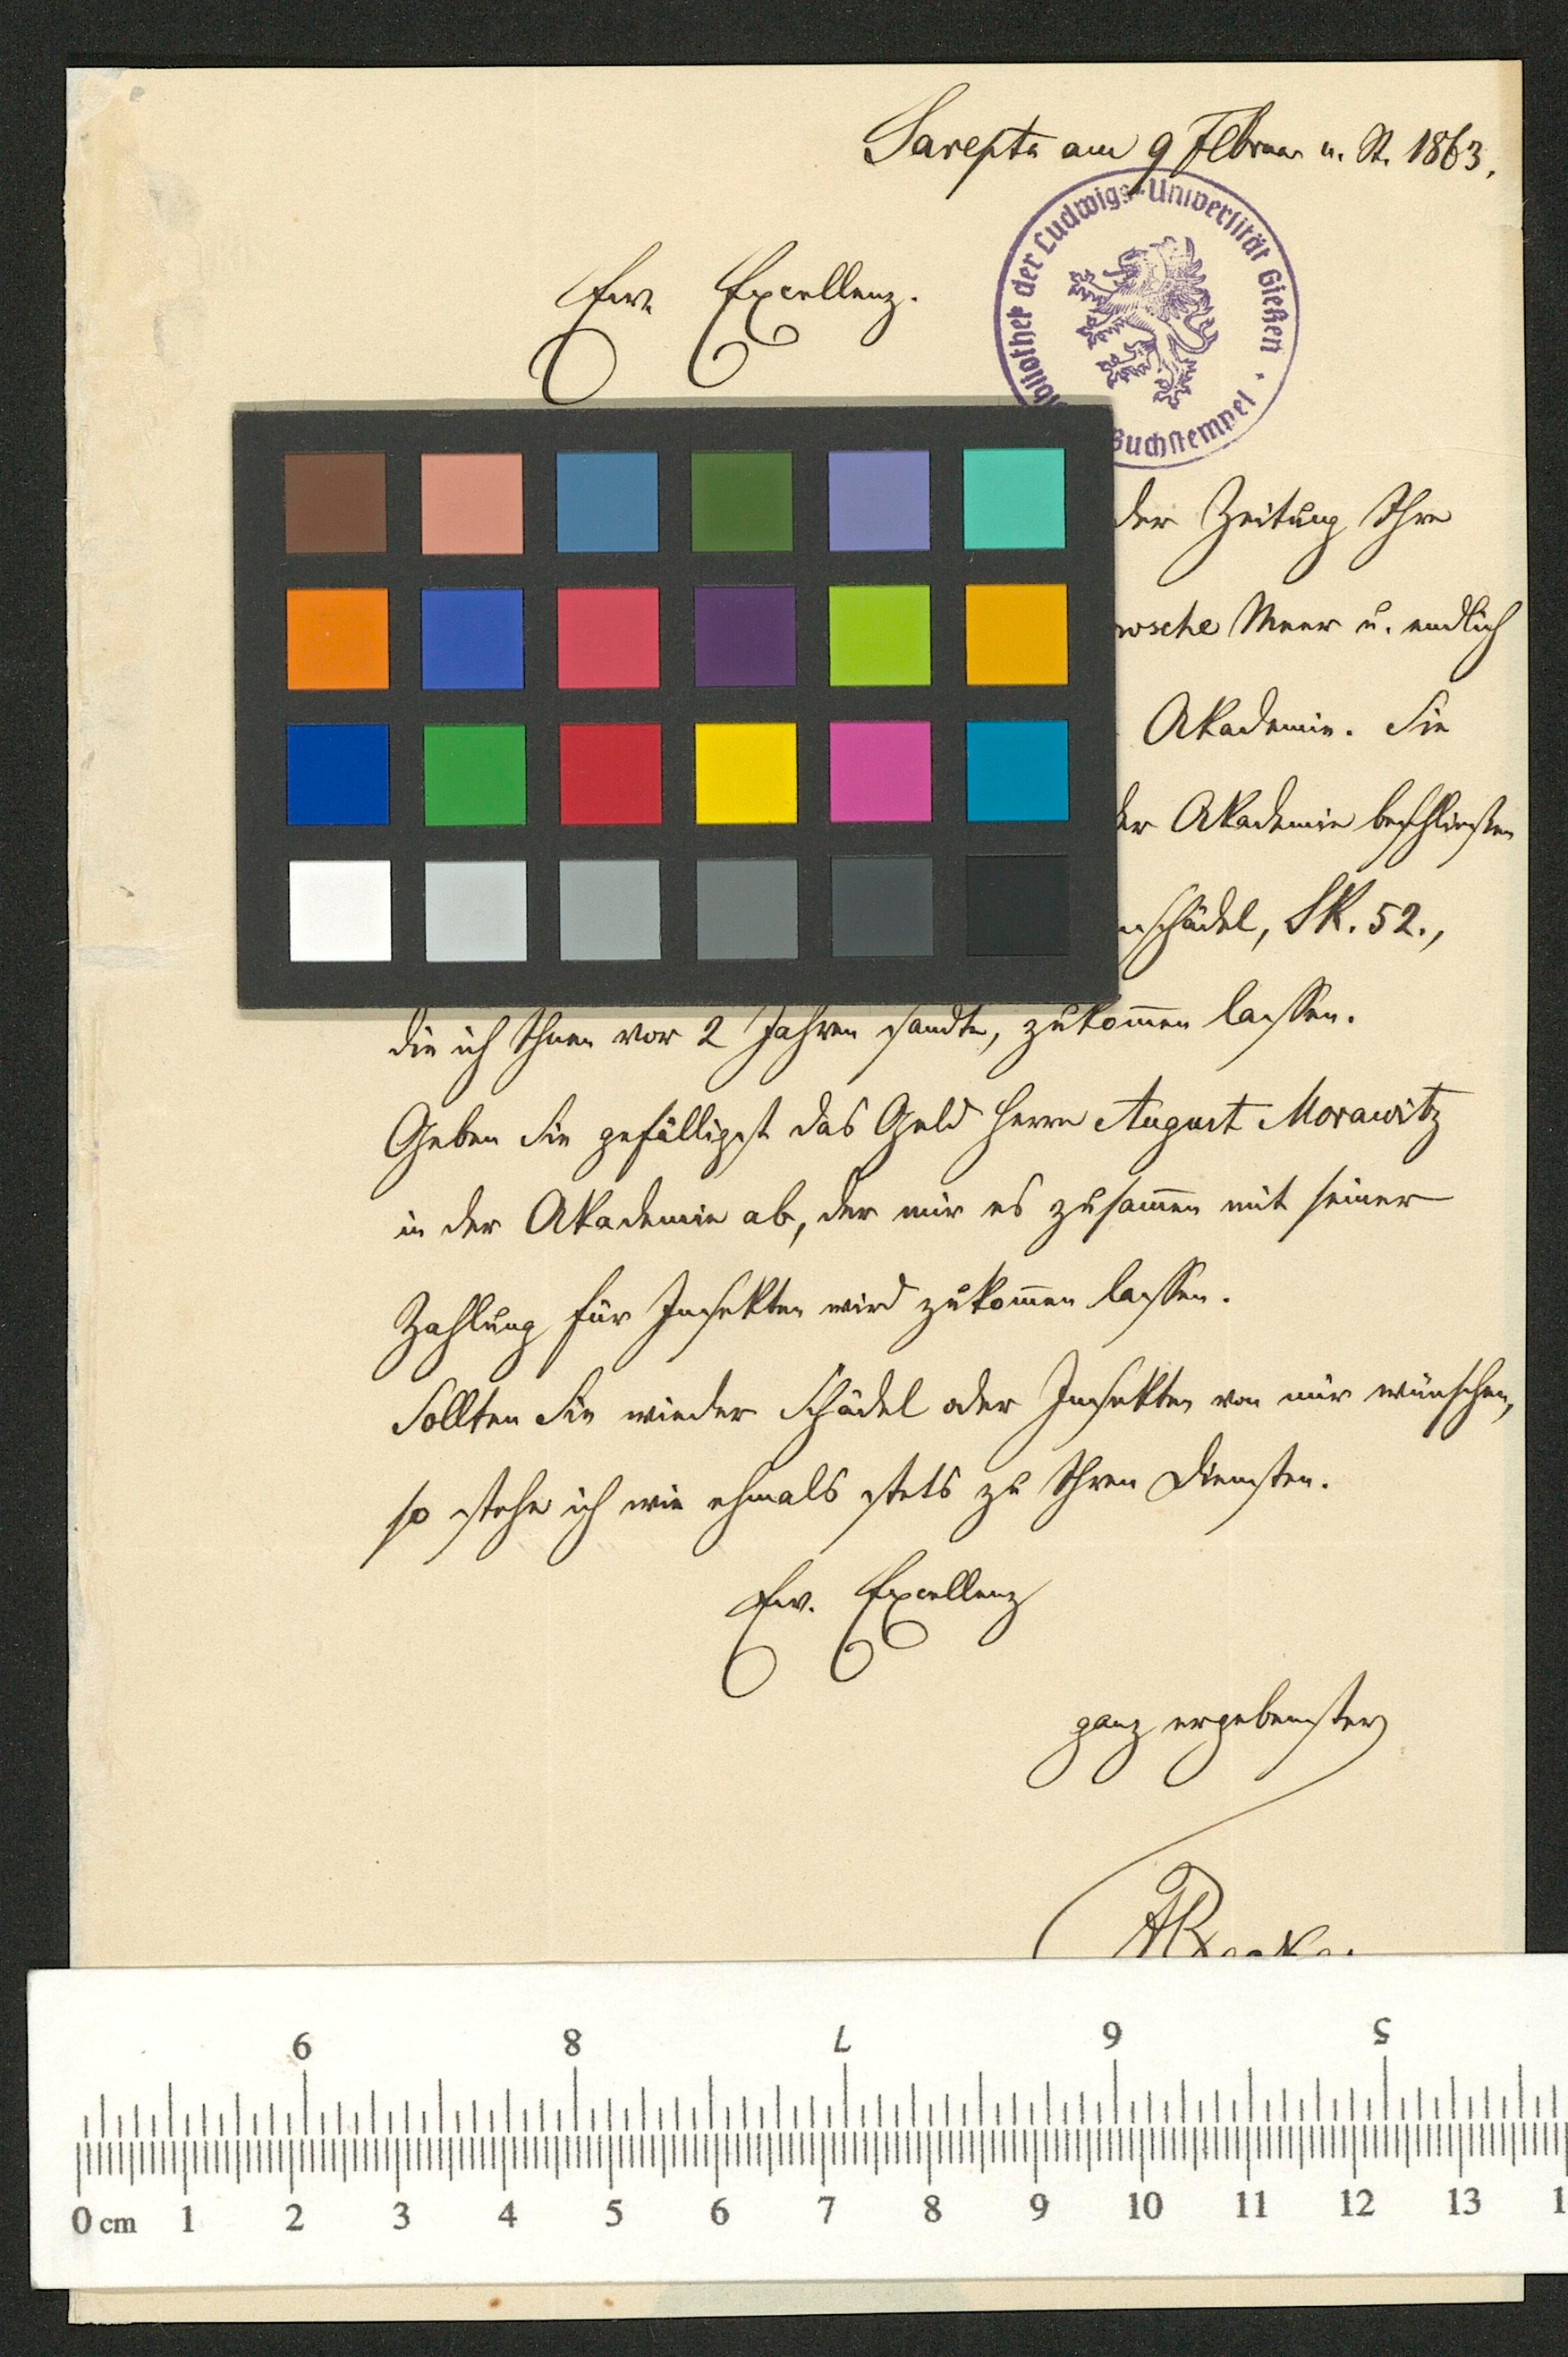 Sarepta am 9 Februar n. St. 1863.
Bibliothek der Ludwigs-Universität Gießen · Buchstempel
Ew. Excellenz.
der Zeitung Ihre
wsche Meer u. endlich
Akademie. Sie
der Akademie beschließen
schädel, SR. 52.,
die ich Ihnen vor 2 Jahren sandte, zukom̅en lassen.
Geben Sie gefälligst das Geld Herrn August Morawitz
in der Akademie ab, der mir es zusam̅en mit seiner
Zahlung für Insekten wird zukom̅en lassen.
Sollten Sie wieder Schädel oder Insekten von mir wünschen,
so stehe ich wie ehmals stets zu Ihren Diensten.
Ew. Excellenz
ganz ergebenster
ABecker
9 8 7 6 5
0 cm 1 2 3 4 5 6 7 8 9 10 11 12 13 1